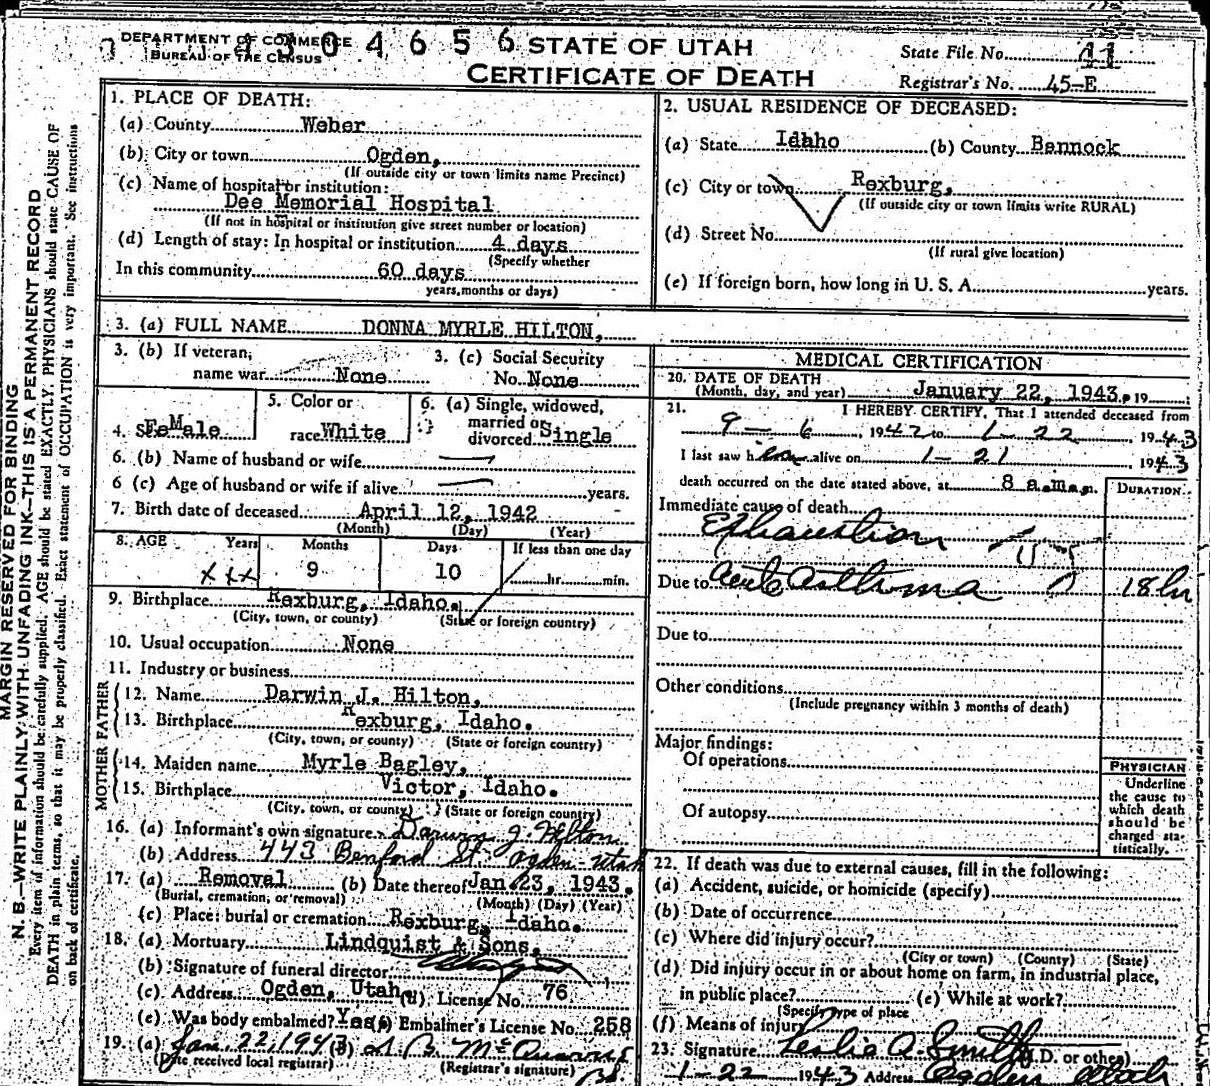 DEPARTMENT OF COMMERCE
BUREAU OF THE CENSUS
4 3 0 4 6 5 6
STATE OF UTAH
CERTIFICATE OF DEATH
State File No. 41
Registrar's No. 45-E
MARGIN RESERVED FOR BINDING
N. B.—WRITE PLAINLY, WITH UNFADING INK—THIS IS A PERMANENT RECORD
Every item of information should be carefully supplied. AGE should be stated EXACTLY. PHYSICIANS should state CAUSE OF
DEATH in plain terms, so that it may be properly classified. Exact statement of OCCUPATION is very important. See instructions
on back of certificate.
1. PLACE OF DEATH:
(a) County Weber
(b) City or town Ogden,
(If outside city or town limits name Precinct)
(c) Name of hospital or institution:
Dee Memorial Hospital
(If not in hospital or institution give street number or location)
(d) Length of stay: In hospital or institution 4 days
(Specify whether
In this community 60 days
years, months or days)
2. USUAL RESIDENCE OF DECEASED:
(a) State Idaho (b) County Bannock
(c) City or town Rexburg,
(If outside city or town limits write RURAL)
(d) Street No.
(If rural give location)
(e) If foreign born, how long in U. S. A. years.
3. (a) FULL NAME DONNA MYRLE HILTON,
3. (b) If veteran, name war None
3. (c) Social Security No. None
4. SFeMale
5. Color or race White
6. (a) Single, widowed, married or divorced Single
6. (b) Name of husband or wife
6 (c) Age of husband or wife if alive years.
7. Birth date of deceased April 12, 1942
(Month) (Day) (Year)
8. AGE Years Months Days If less than one day
xxx 9 10 hr. min.
9. Birthplace Rexburg, Idaho.
(City, town, or county) (State or foreign country)
10. Usual occupation None
11. Industry or business
FATHER
12. Name Darwin J. Hilton,
13. Birthplace Rexburg, Idaho.
(City, town, or county) (State or foreign country)
MOTHER
14. Maiden name Myrle Bagley,
15. Birthplace Victor, Idaho.
(City, town, or county) (State or foreign country)
16. (a) Informant's own signature Darwin J. Hilton
(b) Address 443 Benford St. Ogden-Utah
17. (a) Removal (b) Date thereof Jan 23, 1943.
(Burial, cremation, or removal) (Month) (Day) (Year)
(c) Place: burial or cremation Rexburg, Idaho.
18. (a) Mortuary Lindquist & Sons,
(b) Signature of funeral director
(c) Address Ogden, Utah (d) License No. 76
(e) Was body embalmed? Yes (f) Embalmer's License No. 258
19. (a) Jan. 22, 1943 (b)
(Date received local registrar) (Registrar's signature)
MEDICAL CERTIFICATION
20. DATE OF DEATH
(Month, day, and year) January 22, 1943. 19
21. I HEREBY CERTIFY, That I attended deceased from
9-6, 1942 to 1-22, 1943
I last saw her alive on 1-21, 1943
death occurred on the date stated above, at 8 a.m. m.
DURATION
Immediate cause of death
Exhaustion
Due to Acute Asthma 18 hr
Due to
Other conditions
(Include pregnancy within 3 months of death)
Major findings:
Of operations
Of autopsy
PHYSICIAN
Underline
the cause to
which death
should be
charged sta-
tistically.
22. If death was due to external causes, fill in the following:
(a) Accident, suicide, or homicide (specify)
(b) Date of occurrence
(c) Where did injury occur?
(City or town) (County) (State)
(d) Did injury occur in or about home on farm, in industrial place,
in public place? (e) While at work?
(Specify type of place
(f) Means of injury
23. Signature Leslie A. Smith (M.D. or other)
1-22 1943 Address Ogden Utah